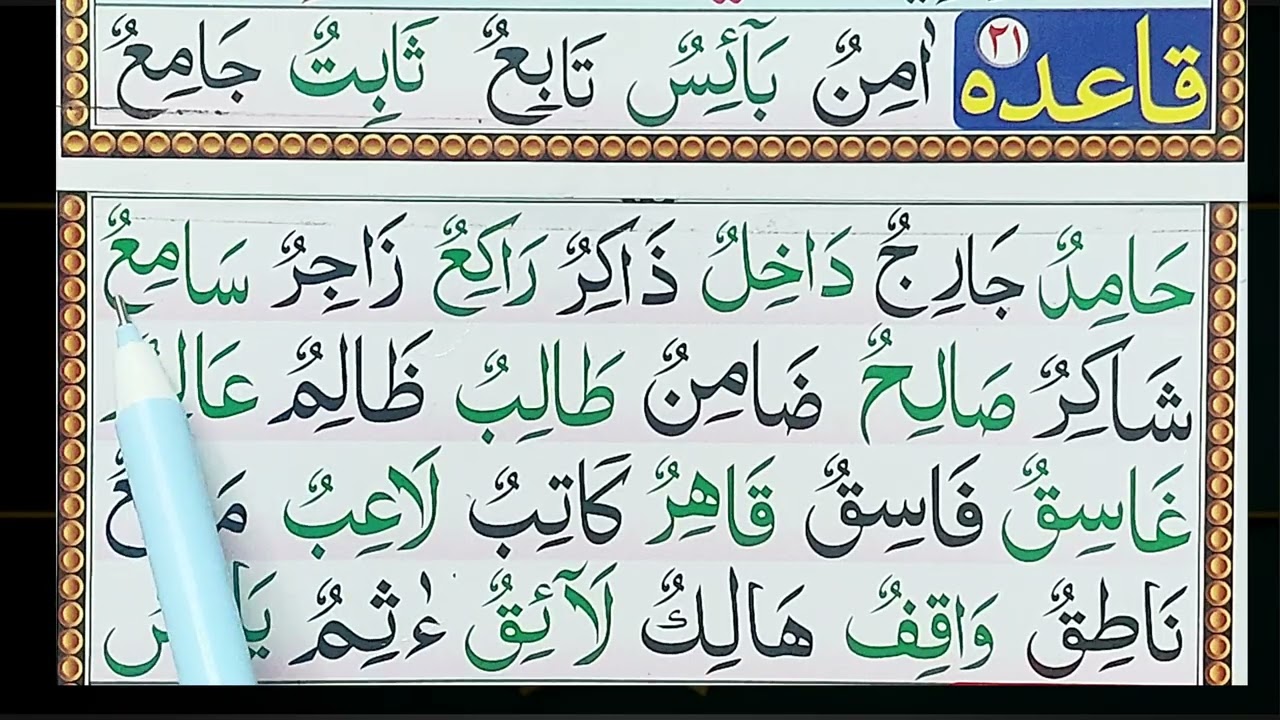 قاعدہ ٢١ اٰمِنٌ بَآئِسٌ تَابِعٌ ثَابِتٌ جَامِعٌ
حَامِدٌ جَارِجٌ دَاخِلٌ ذَاكِرٌ رَاكِعٌ زَاجِرٌ سَامِعٌ
شَاكِرٌ صَالِحٌ ضَامِنٌ طَالِبٌ ظَالِمٌ
غَاسِقٌ فَاسِقٌ قَاهِرٌ كَاتِبٌ لَاعِبٌ
نَاطِقٌ وَاقِفٌ هَالِكٌ لَآئِقٌ ءٰثِمٌ